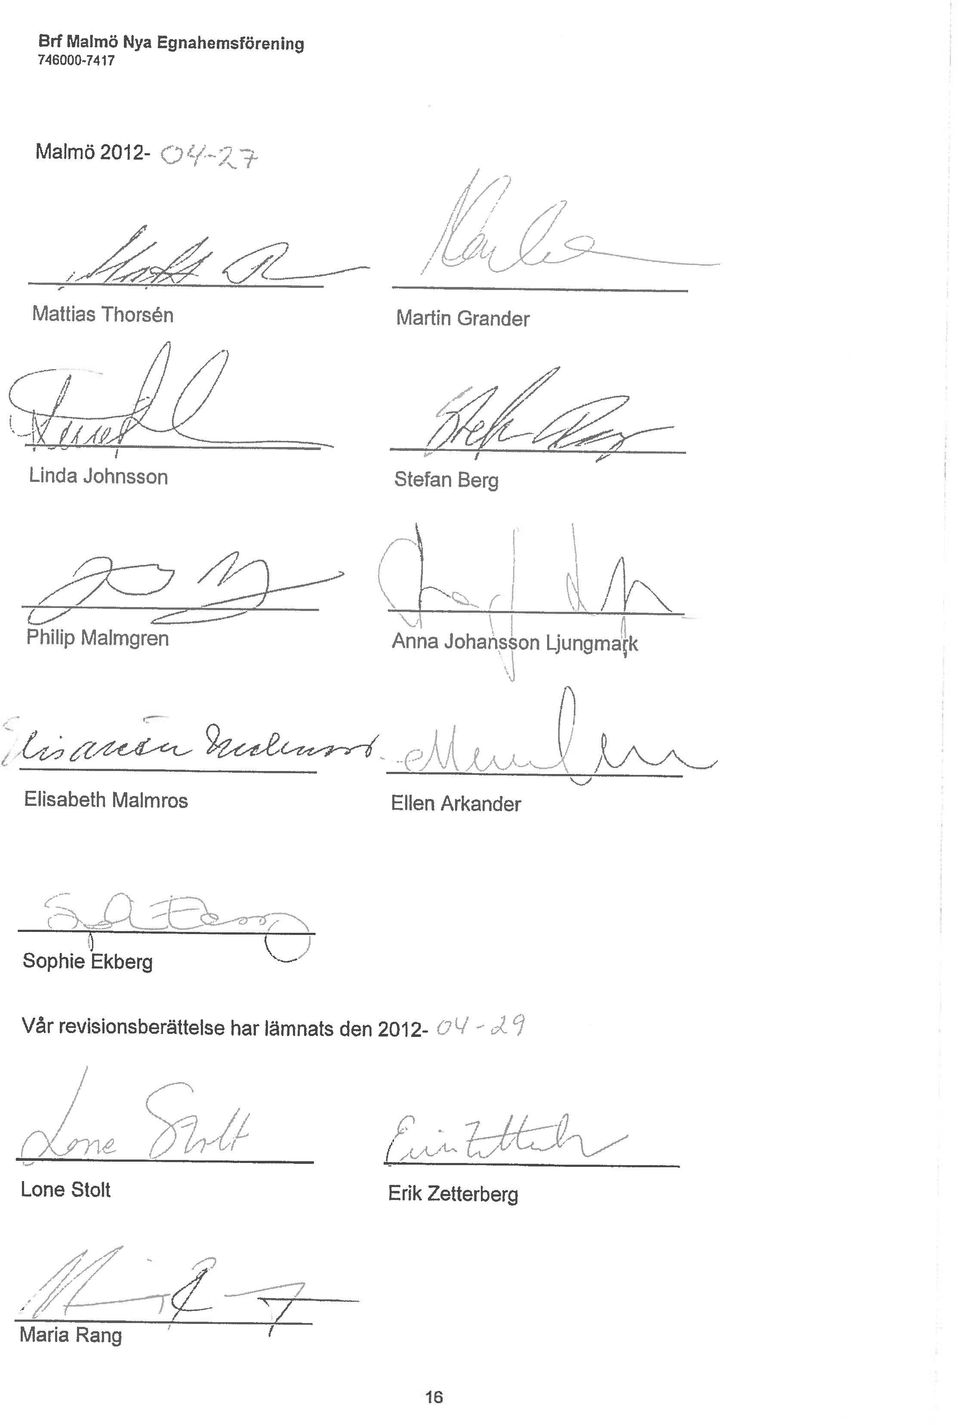 Brf Malmö Nya Egnahemsförening
746000-7417
Malmö 2012- 04-27
Mattias Thorsén Martin Grander
Linda Johnsson Stefan Berg
Philip Malmgren Anna Johansson Ljungmark
Elisabeth Malmros
Elisabeth Malmros Ellen Arkander
Sophie Ekberg
Vår revisionsberättelse har lämnats den 2012- 04-29
Lone Stolt
Lone Stolt Erik Zetterberg
Maria Rang
16